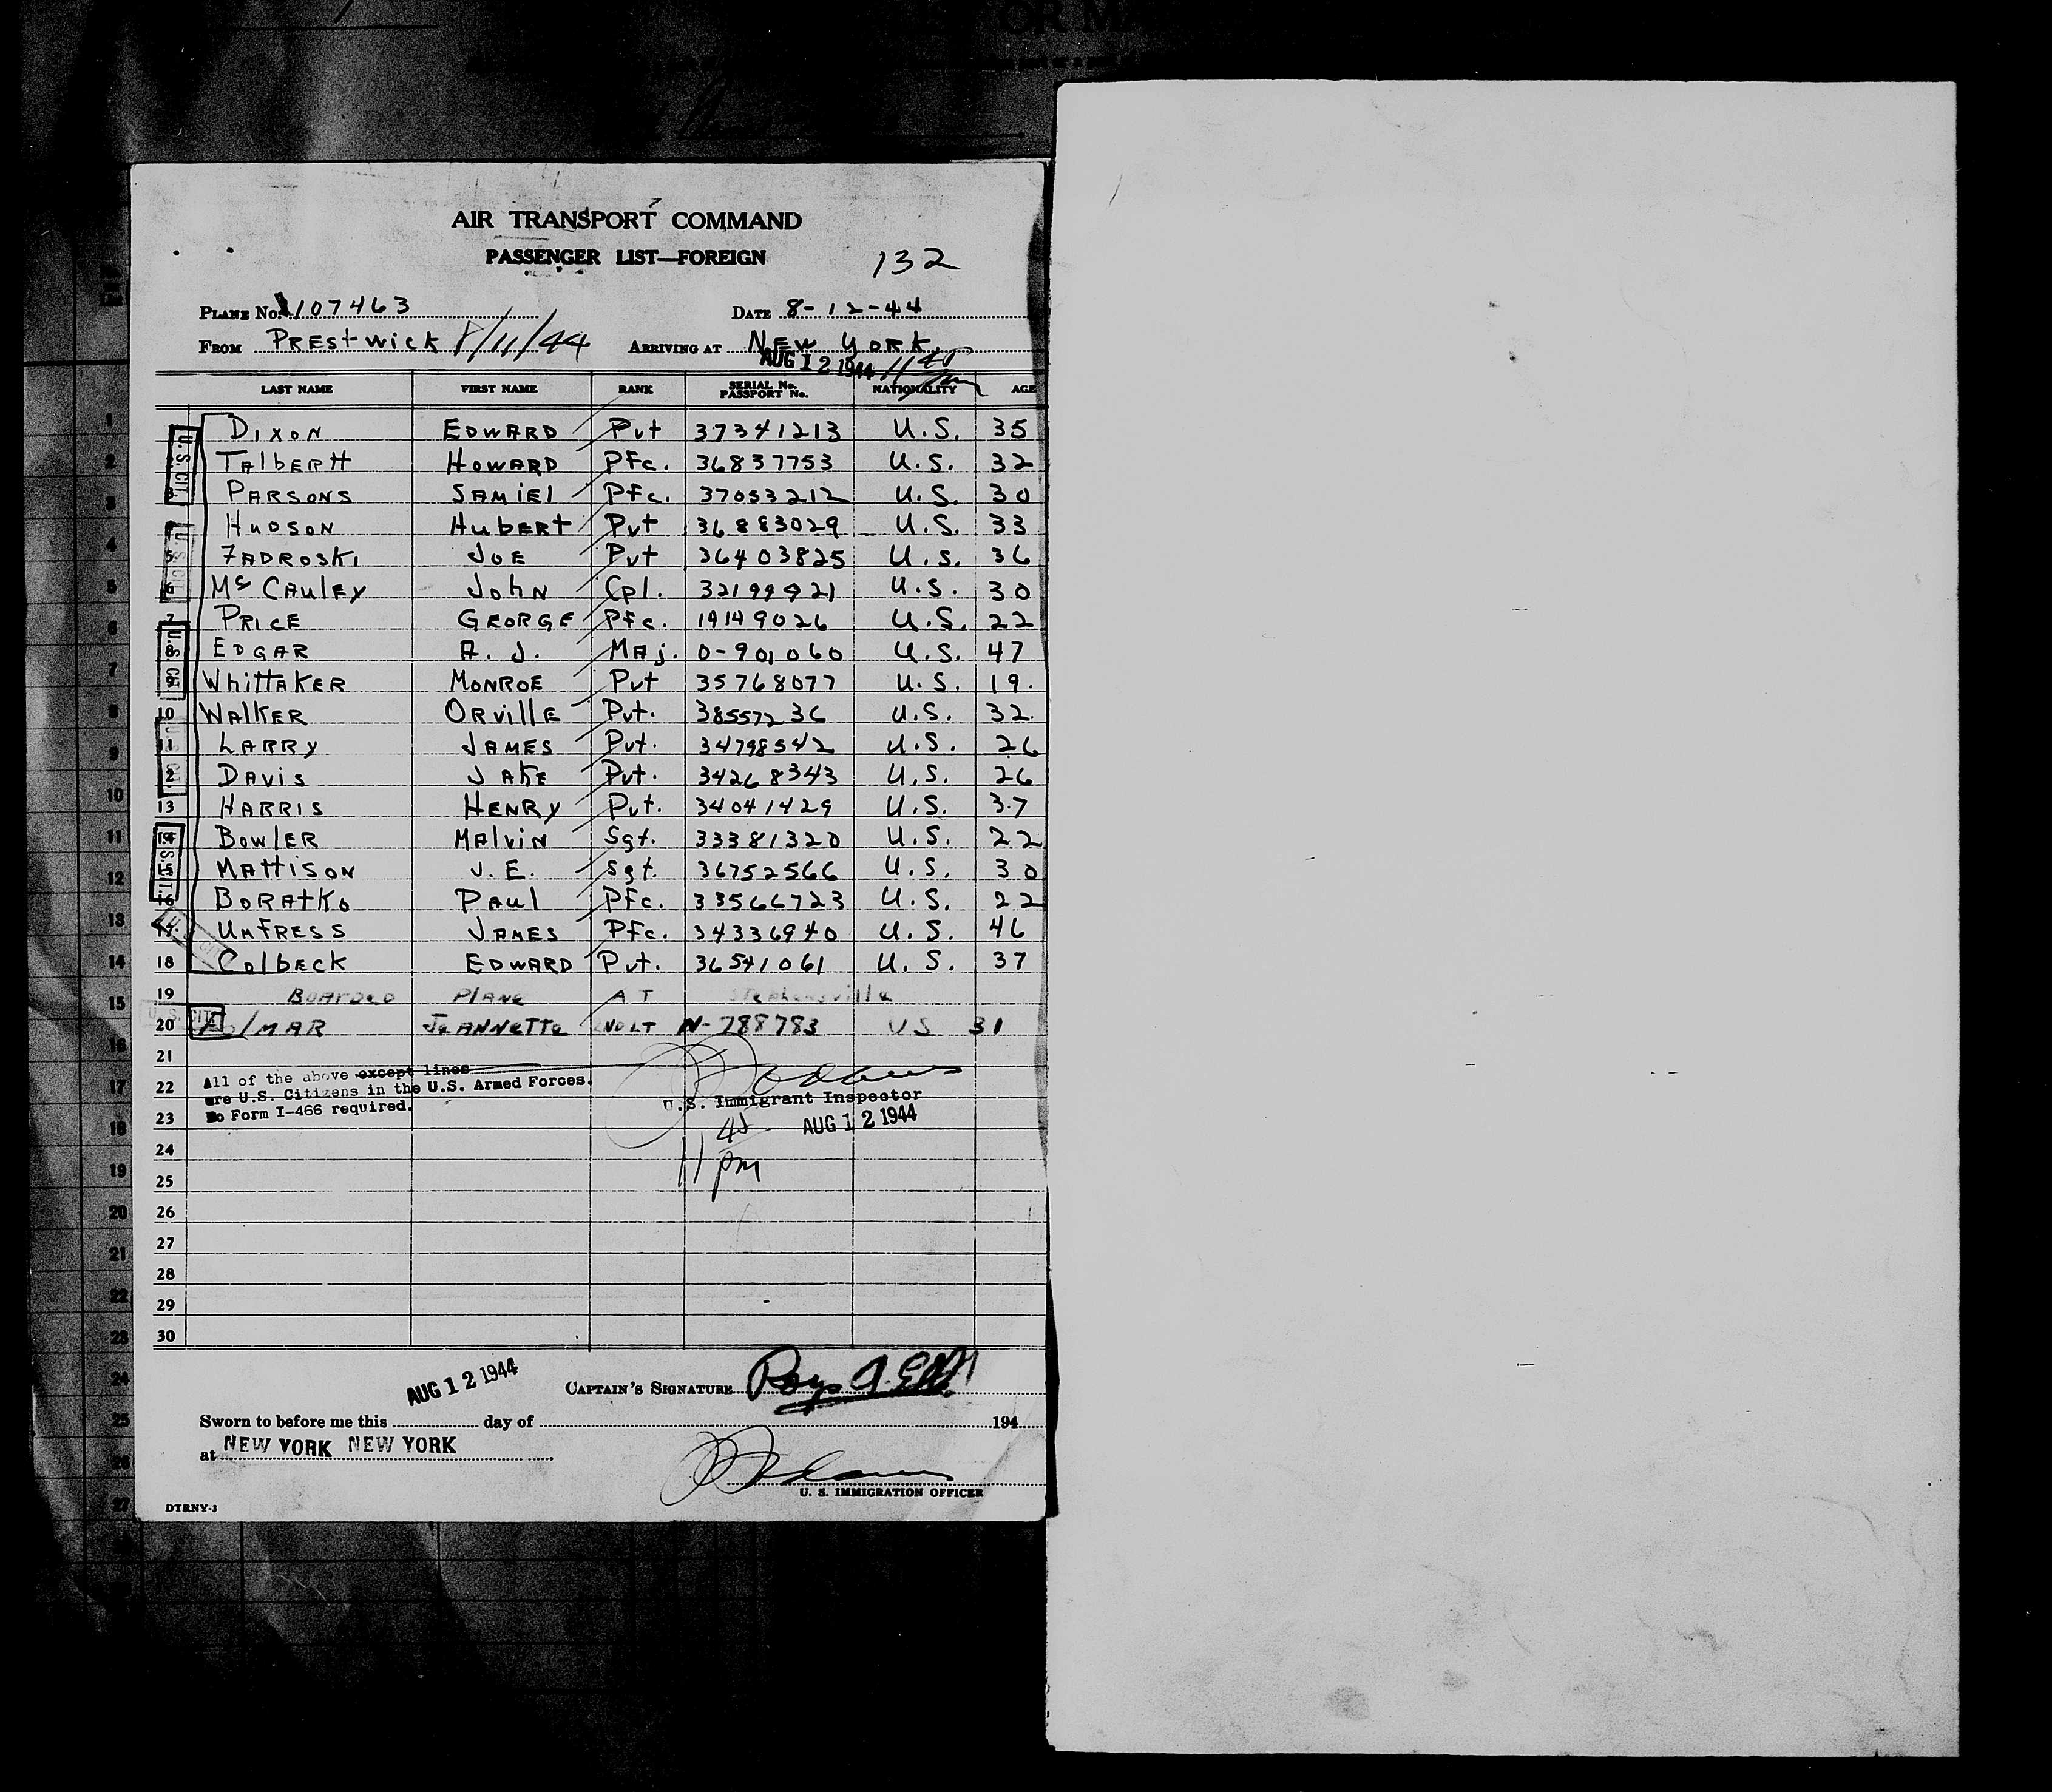 AIR TRANSPORT COMMAND
PASSENGER LIST—FOREIGN
132
PLANE No. 107463 DATE 8-12-44
FROM PRESTWICK 8/11/44 ARRIVING AT NEW YORK
AUG 12 1944 11 45 pm
LAST NAME FIRST NAME RANK SERIAL No. PASSPORT No. NATIONALITY AGE
1 DIXON EDWARD Pvt 37341213 U.S. 35
2 TAlbERtt HOWARD Pfc. 36837753 U.S. 32
3 PARSONS SAMiEl Pfc. 37053212 U.S. 30
4 HUDSON HubERt Pvt 36883029 U.S. 33
5 ZADROSKi JOE Pvt 36403825 U.S. 36
6 McCAulEY JohN Cpl. 32199921 U.S. 30
7 PRICE GEORGE Pfc. 19149026 U.S. 22
8 EDGAR A. J. MAj. 0-901060 U.S. 47
9 WhittAKER MONROE Pvt 35768077 U.S. 19.
10 WALKER ORvillE Pvt. 38557236 U.S. 32.
11 LARRY JAMES Pvt. 34798542 U.S. 26
12 DAVIS JAKE Pvt. 34268343 U.S. 26
13 HARRIS HENRY Pvt. 34041429 U.S. 37
14 BOWlER MAlviN Sgt. 33381320 U.S. 22
15 MAttiSON J. E. Sgt. 36752566 U.S. 30
16 BORAtKo PAul Pfc. 33566723 U.S. 22
17 UMFRESS JAMES Pfc. 34336940 U.S. 46
18 ColbECK EDWARD Pvt. 36541061 U.S. 37
19 BOARDED PLANE AT Stephensville
U.S. CIT.
20 FolMAR JEANNETTE 2ND LT N-788783 US 31
21
22 All of the above except lines
are U.S. Citizens in the U.S. Armed Forces.
23 No Form I-466 required.
U.S. Immigrant Inspector
AUG 12 1944
11 45 pm
24
25
26
27
28
29
30
AUG 12 1944
CAPTAIN'S SIGNATURE
Sworn to before me this day of 194
at NEW YORK NEW YORK
U. S. IMMIGRATION OFFICER
DTRNY-3